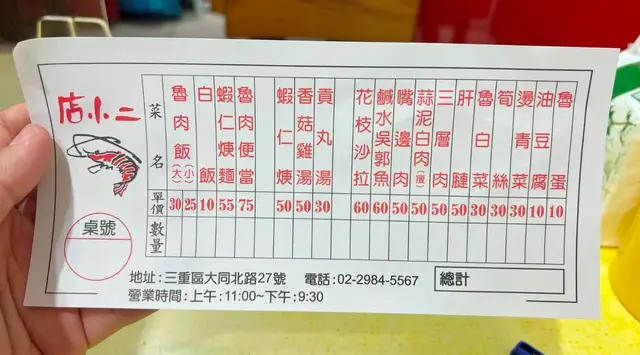 店小二
菜名
單價
數量
魯肉飯(大)(小) 30 25
白飯 10
蝦仁焿麵 55
魯肉便當 75
蝦仁焿 50
香菇雞湯 50
貢丸湯 30
花枝沙拉 60
鹹水吳郭魚 60
嘴邊肉 50
蒜泥白肉(瘦) 50
三層肉 50
肝膁 50
魯白菜 30
筍絲 30
燙青菜 30
油豆腐 10
魯蛋 10
桌號
地址:三重區大同北路27號 電話:02-2984-5567
營業時間:上午:11:00~下午:9:30
總計